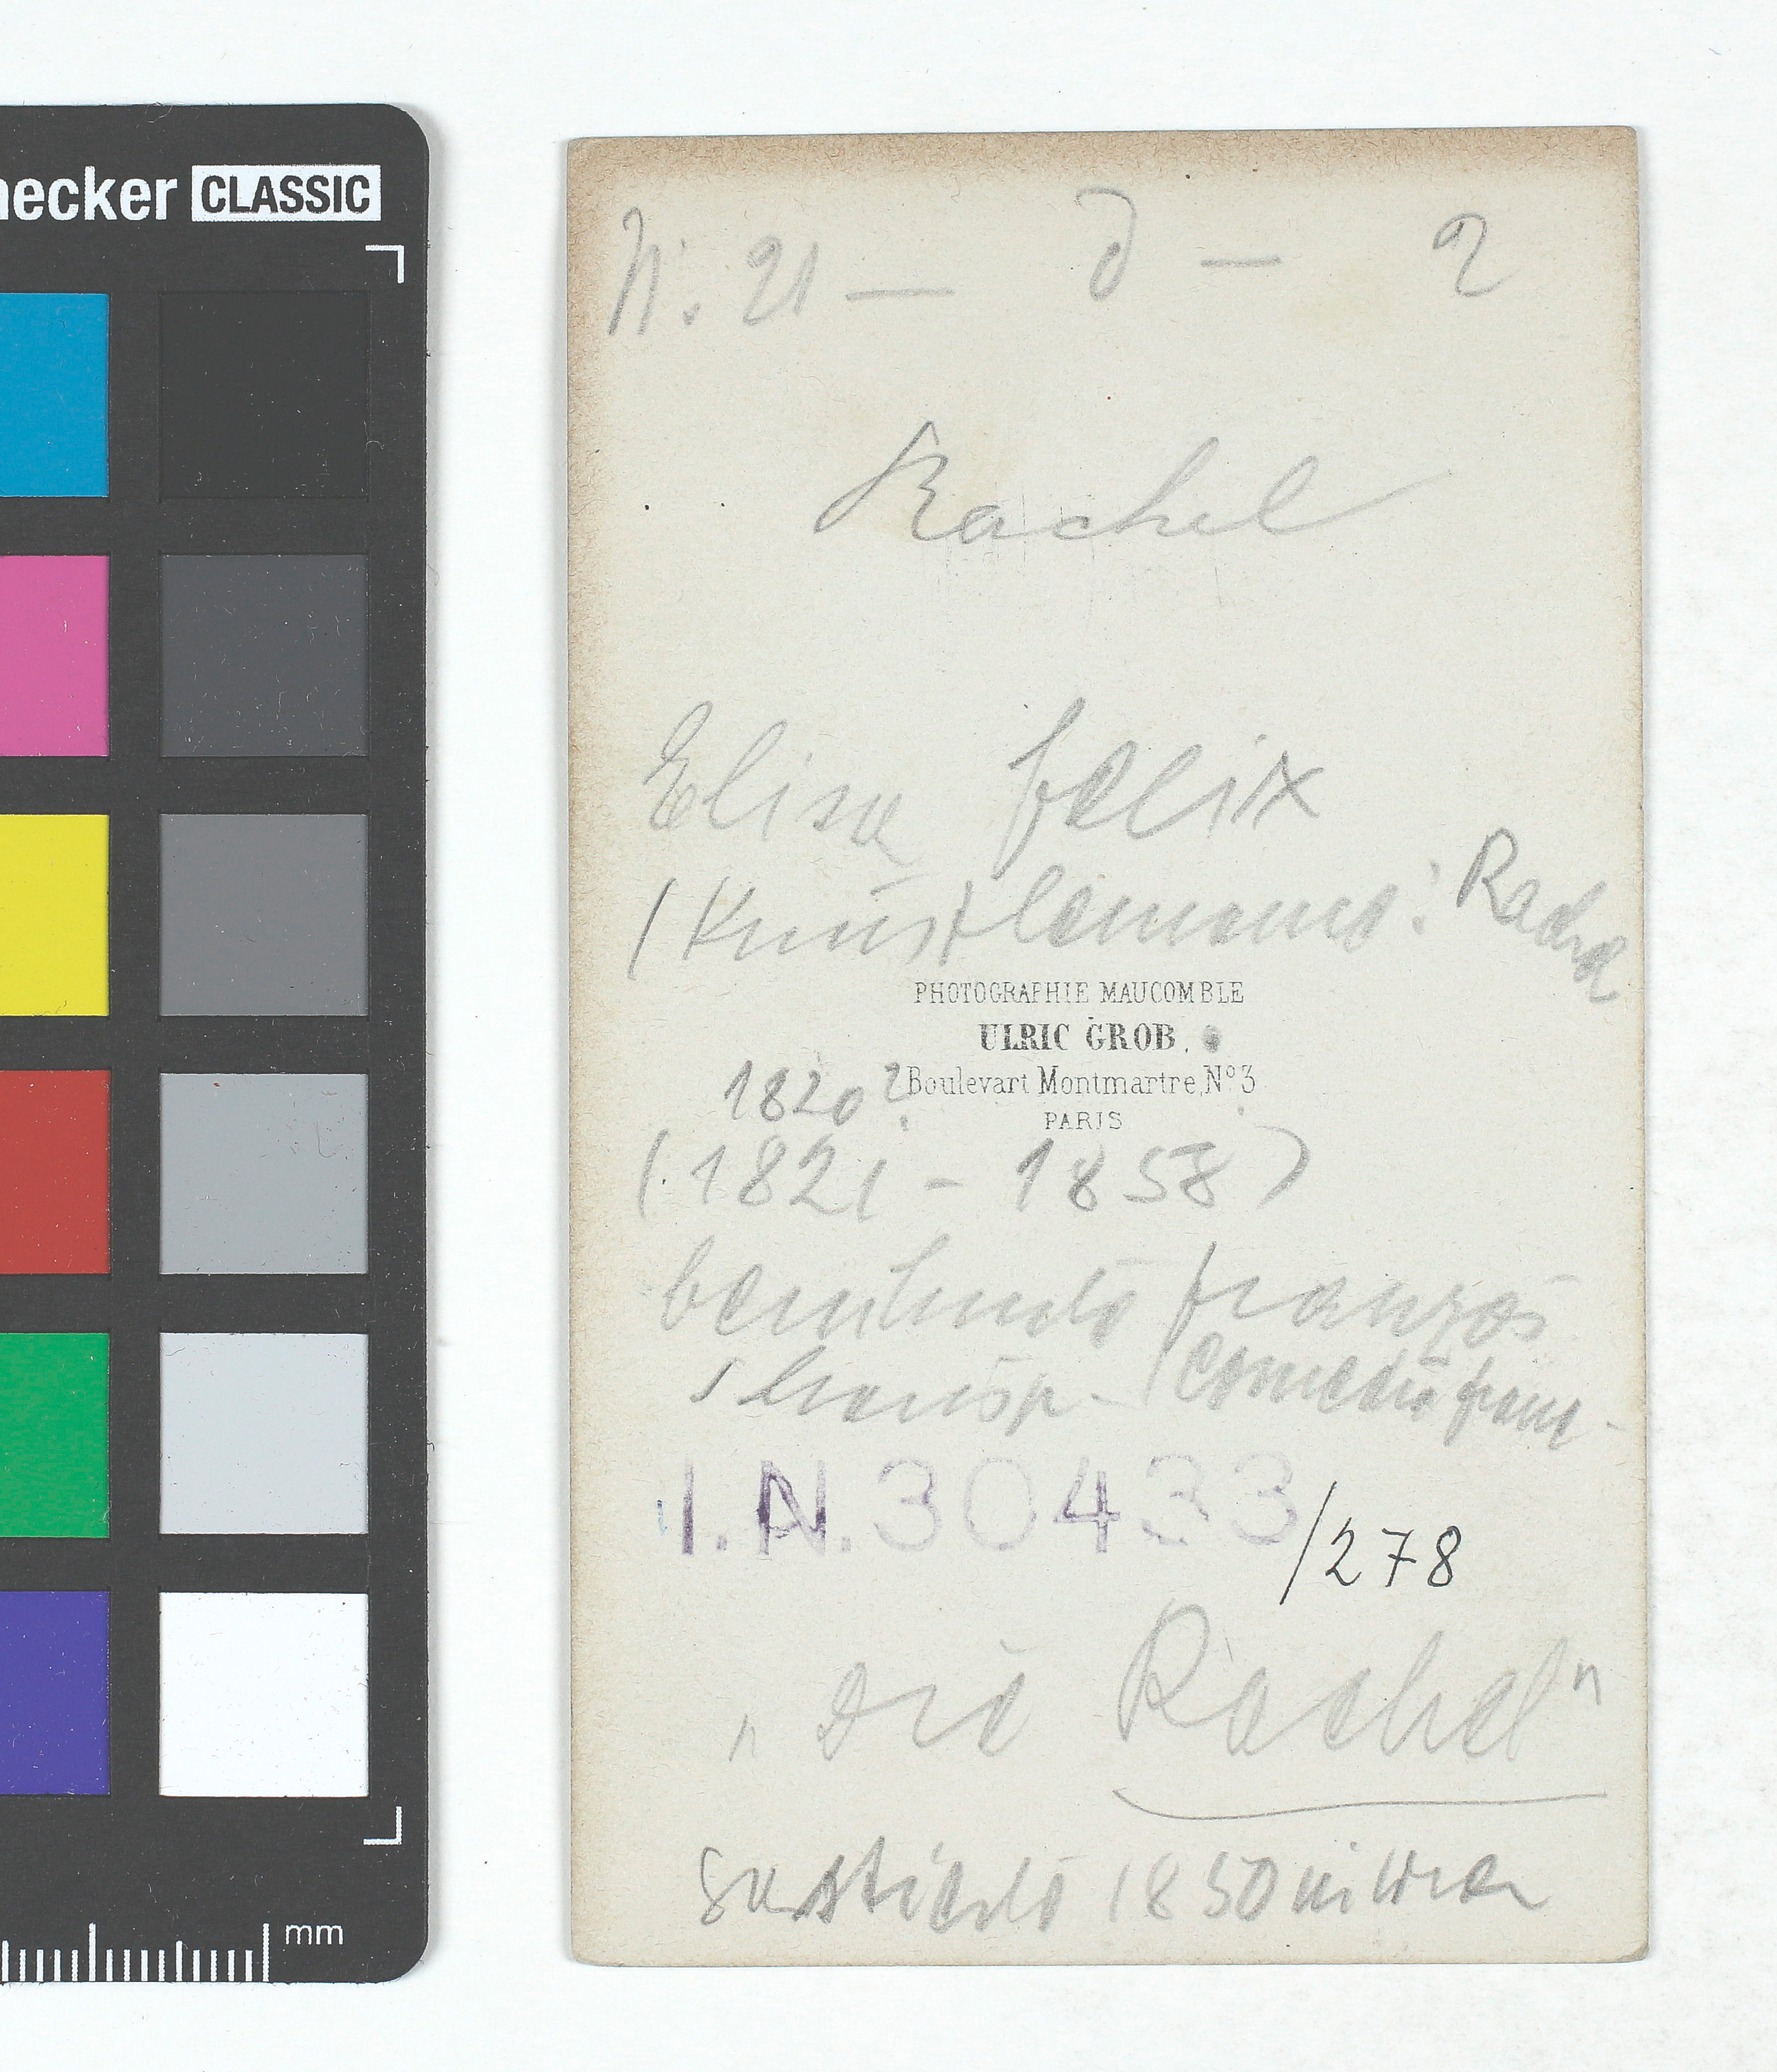 necker CLASSIC
N. 21 — d — 2
Rachel
Elisa Felix
(Künstlername: Rachel
PHOTOGRAPHIE MAUCOMBLE
ULRIC GROB.
Boulevart Montmartre, N° 3
PARIS
1820?
(1821 - 1858)
berühmte französ
Schausp. (Comedie franç.
I.N. 30433/278
"Die Rachel"
gastierte 1850 in Wien
mm